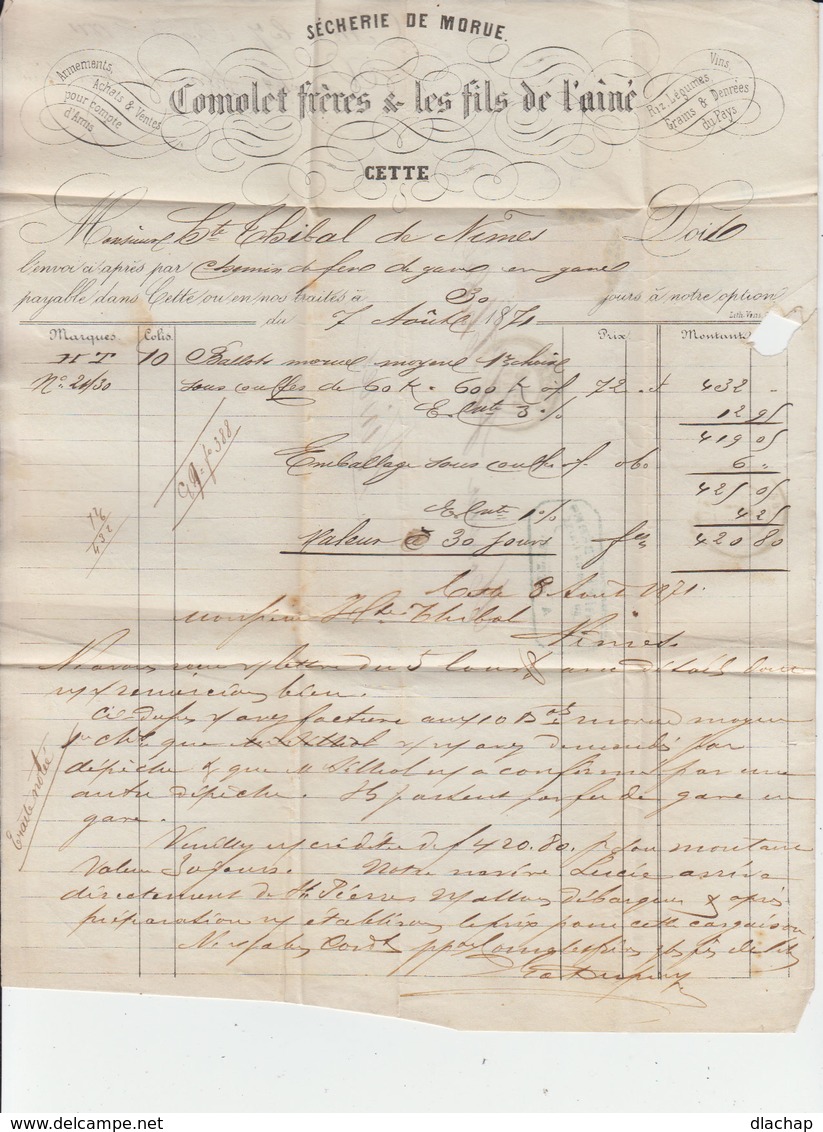 SÉCHERIE DE MORUE.
Armements,
Achats & Ventes
pour compte
d'Amis
Vins,
Riz, Légumes,
Grains & Denrées
du Pays
Comolet frères & les fils de l'aîné
CETTE
Monsieur Hte Thibal de Nîmes Doit
l'envoi ci après par chemin de fer de gare en gare
payable dans Cette ou en nos traites à 30 jours à notre option
du 7 Août 1871
Marques. Colis. Prix Montant
HT 10 Ballots morue moyene 1r choix
No 21/30 sous couffes de 60 k. 600 k f 72 432 "
Escte 3 % 12 95
419 05
Emballage sous couffes f. 0 60 6 "
425 05
Escte 1 % 4 25
Valeur à 30 jours fcs 420 80
388
432
Cette 8 Août 1871.
Monsieur Hte Thibal
Nîmes
Nous avons reçu v/ lettre du 5 Court
v/ remercions bien.
Ci dessus v/ avez facture aux 10 Bts morue moyen
1r ch. que v/ n/ avez demandés par
dépêche & que M n/ a confirmé par une
autre dépêche. Ils partent par fer de gare en
gare.
Traite notée
Veuillez n/ créditer de f 420.80. p/ son montant
Valeur 30 jours. Notre navire Lucie arrive
directement de St Pierre n/ allons débarquer & après
préparation n/ établirons le prix pour cette cargaison